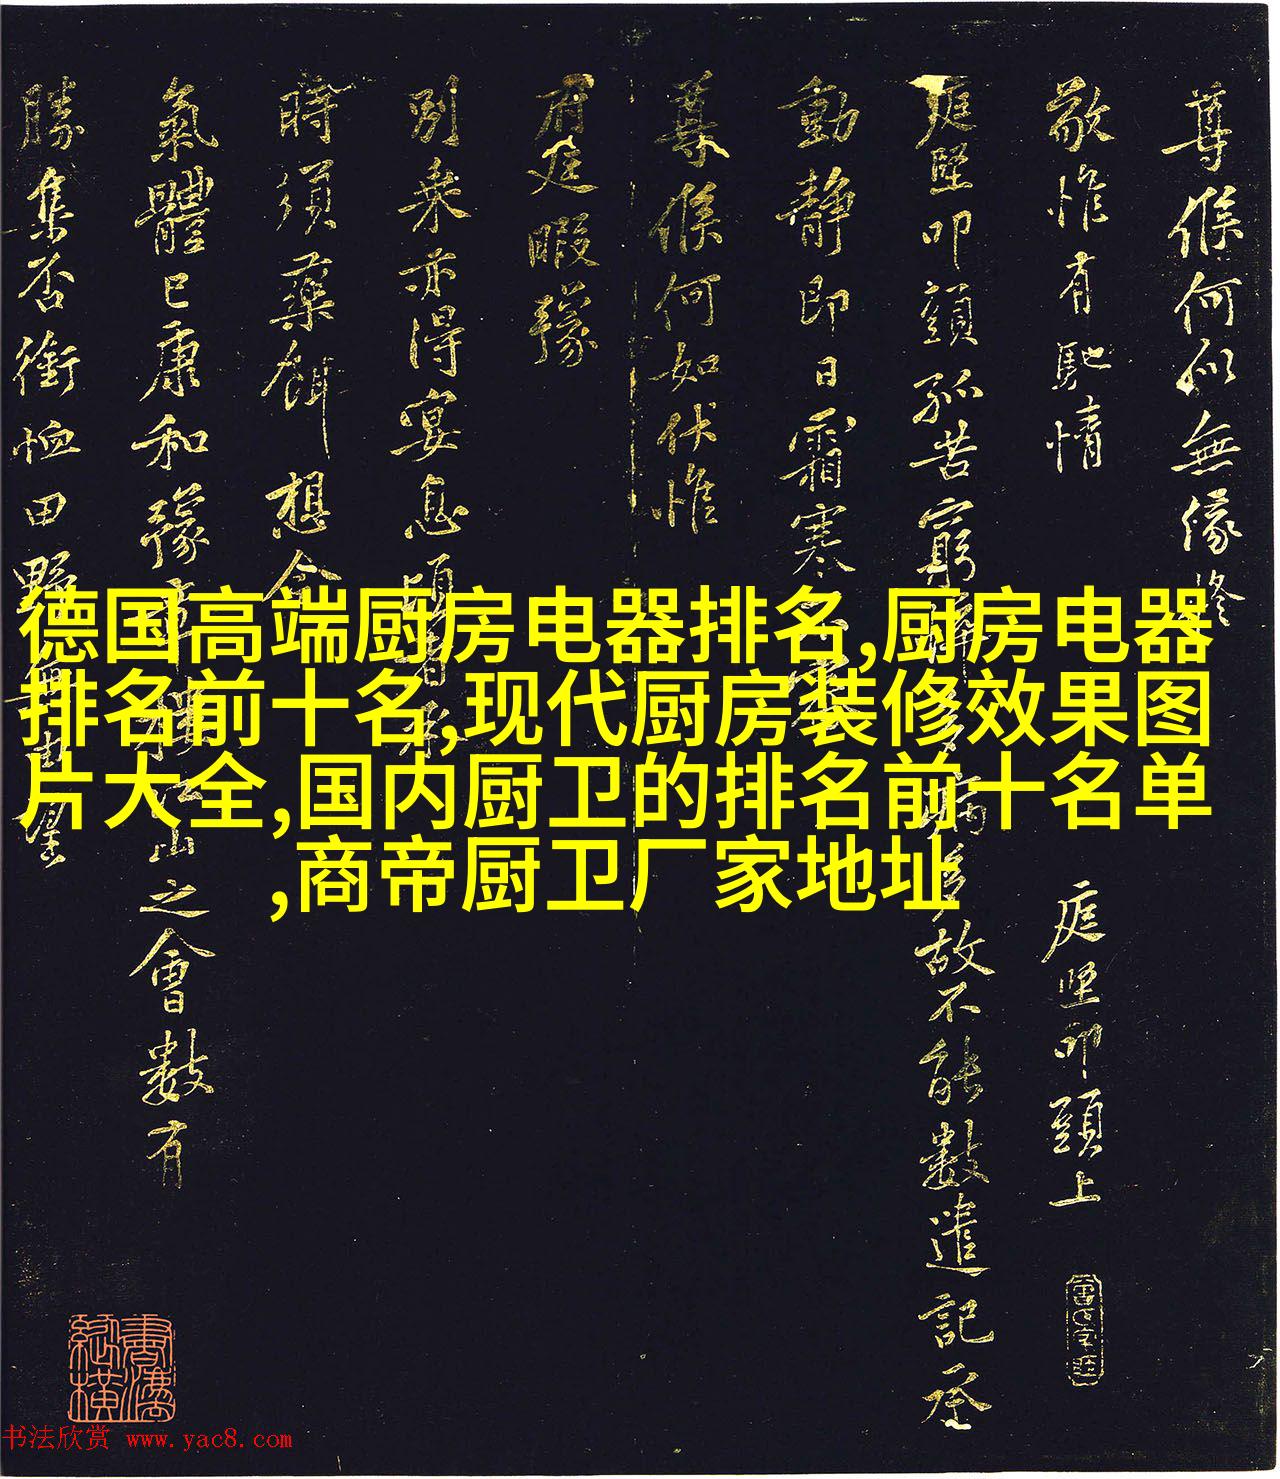 尊候何似無緣修
敬惟有馳情
庭堅叩頭上
庭堅叩頭孤苦窮
故不能數遣記承
動静即日霜寒
尊候何如伏惟
府廷暇豫
別乗亦得宴息
時須藥餌想
氣體已康和豫
山之會數有
勝集否銜恤田野
望
德国高端厨房电器排名,厨房电器
排名前十名,现代厨房装修效果图
片大全,国内厨卫的排名前十名单
,商帝厨卫厂家地址
书法欣赏 www.yac8.com